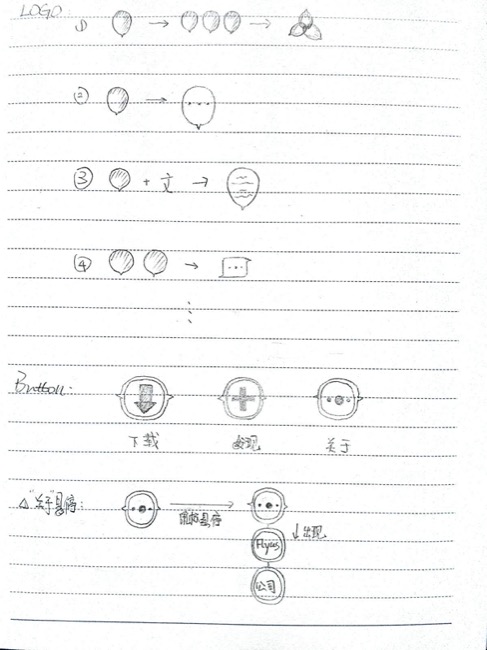 LOGO
①
②
③ + 文
④
Button:
下载 发现 关于
△"关于"悬停: 鼠标悬停
↓出现
Flyues
公司